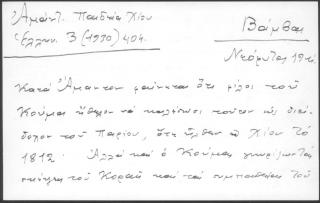 Ἀμάντ. Παιδεία Χίου
Ἑλλην. 3 (1930) 404.
Βάμβας
Κατὰ Ἄμαντον φαίνεται ὅτι φίλοι τοῦ
Κούμα ἤθελον νὰ καλέσωσι τοῦτον ὡς διά-
δοχον τοῦ Παρίου, ὅτε ἦλθεν εἰς Χίον τὸ
1812. Ἀλλὰ καὶ ὁ Κούμας γνωρίζων τὰς
τοῦ Κοραῆ καὶ τὰς συμπαθείας τοῦ